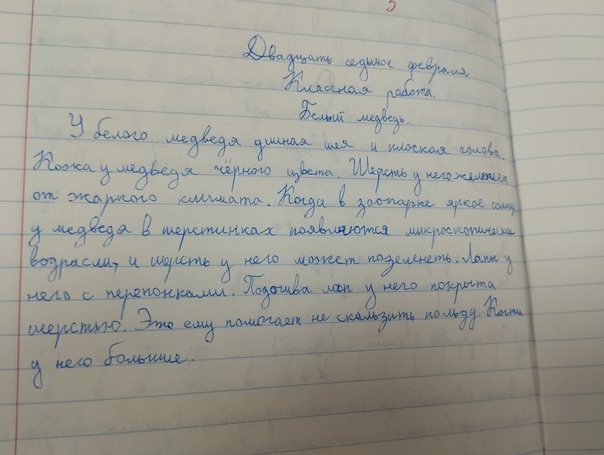 5
Двадцать седьмое февраля
Классная работа.
Белый медведь.
У белого медведя длиная шея и плоская голова.
Кожа у медведя чёрного цвета. Шерсть у него желтеет
от жаркого климата. Когда в зоопарке яркое солнце
у медведя в шерстинках появляются микроскопически
водрасли, и шерсть у него может позеленеть. Лапы у
него с перепонками. Подошва лап у него покрыта
шерстью. Это ему помогает не скальзить по льду. Когти
у него большие.